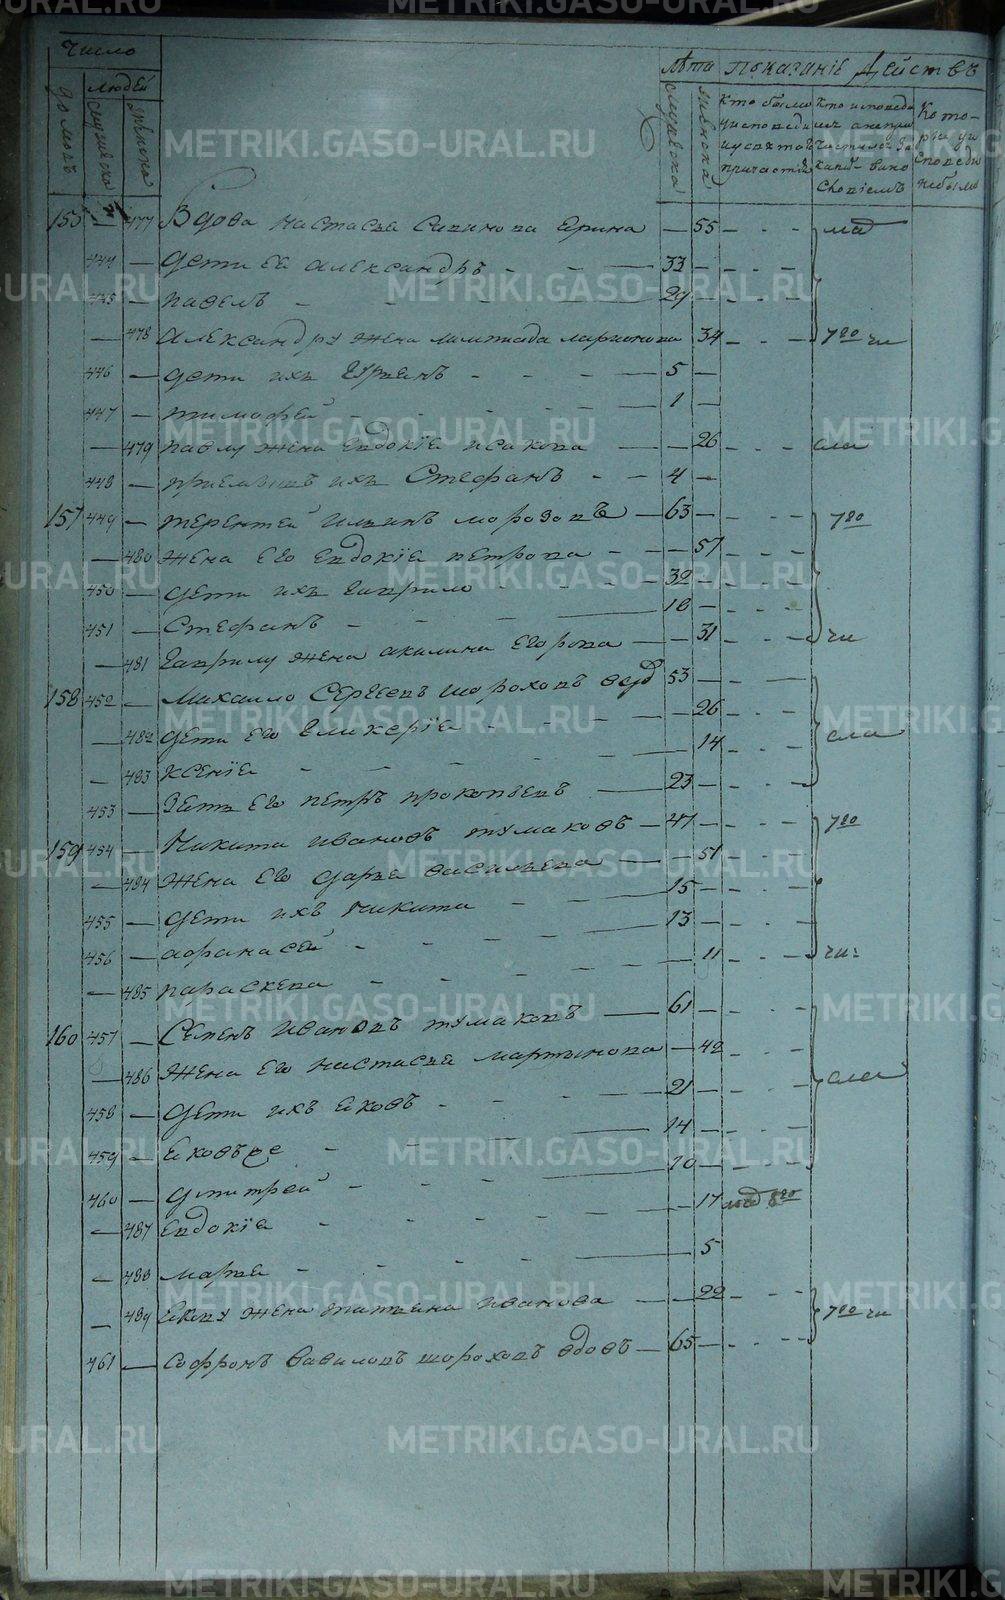 Число
людей
домовъ
мужеска
женска
Лѣта
мужеска
женска
Показание Действъ
кто были
у исповеди
и у святаго
причастия
кто исповеда
лись а не при
частились за
какой виною
Кото-
рые у и
споведи
не были
155 — 477 Вдова настасья Ерина — 55
444 — дети ея александръ — 33
445 — павелъ — 29
— 478 александру жена ларионова — 34
446 — дети ихъ — 5
447 — тимофей — 1
— 479 павлу жена евдокiя исакова — 26
448 — приемышъ ихъ Стефанъ — 4
157 449 — терентей ильинъ морозовъ — 63
— 480 жена его евдокiя петрова — 57
450 — дети ихъ гаврило — 32
451 — Стефанъ — 18
— 481 гаврилу жена акилина егорова — 31
158 452 — Михаило Сергеевъ шороховъ — 53
— 482 дети его гликерiя — 26
— 483 ксенiя — 14
453 — зять его петръ прокопьевъ — 23
159 454 — Никита ивановъ тумаковъ — 47
— 484 жена его дарья васильева — 51
455 — дети ихъ никита — 15
456 — афанасей — 13
— 485 параскева — 11
160 457 — Семенъ ивановъ тумаковъ — 61
— 486 жена его настасья мартынова — 42
458 — дети ихъ яковъ — 21
459 — яковъ же — 14
460 — дмитрей — 10
— 487 евдокiя — 17
— 488 марья — 5
— 489 якову жена татьяна иванова — 22
461 — софронъ вавиловъ шороховъ вдовъ — 65
METRIKI.GASO-URAL.RU